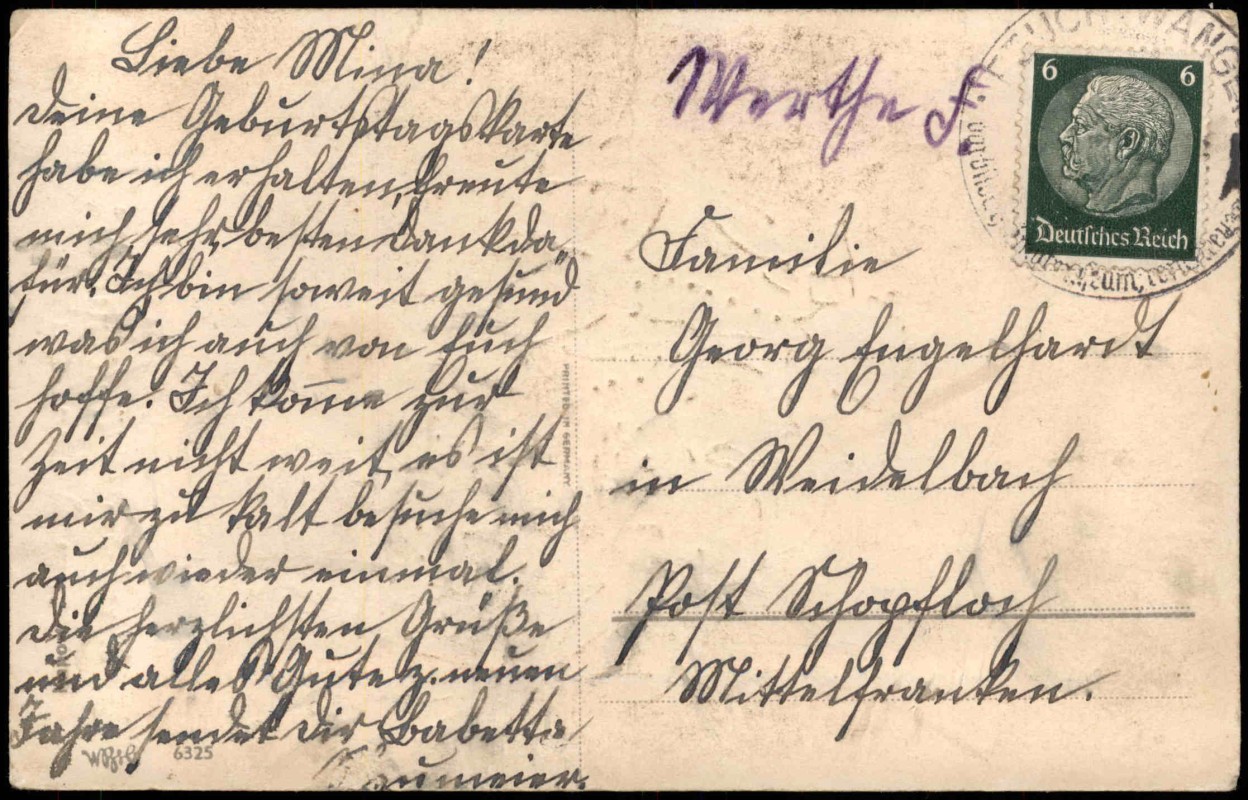 Liebe Mina!
Deine Geburtstagskarte
habe ich erhalten, freute
mich sehr, besten Dank da„
für. Ich bin soweit gesund
was ich auch von Euch
hoffe. Ich kom̄e zur
Zeit nicht weit, es ist
mir zu kalt besuche mich
auch wieder einmal.
Die herzlichsten Grüße
und alles Gute z. neuen
Jahre sendet dir Babetta
6325
PRINTED IN GERMANY
Werthe F.
6 6
Deutsches Reich
FEUCHTWANGEN
Familie
Georg Engelhardt
in Weidelbach
Post Schopfloch
Mittelfranken.